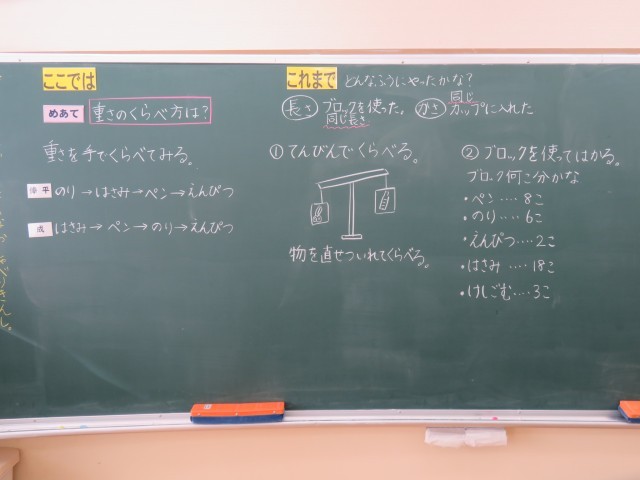 ここでは
めあて 重さのくらべ方は?
重さを手でくらべてみる。
洋平 のり→はさみ→ペン→えんぴつ
成 はさみ→ペン→のり→えんぴつ
これまで どんなふうにやったかな?
長さ ブロックを使った。
同じ長さ
かさ 同じ
カップに入れた
① てんびんでくらべる。
物を直せついれてくらべる。
② ブロックを使ってはかる。
ブロック何こ分かな
・ペン‥‥8こ
・のり‥‥6こ
・えんぴつ‥‥2こ
・はさみ‥‥18こ
・けしごむ‥‥3こ